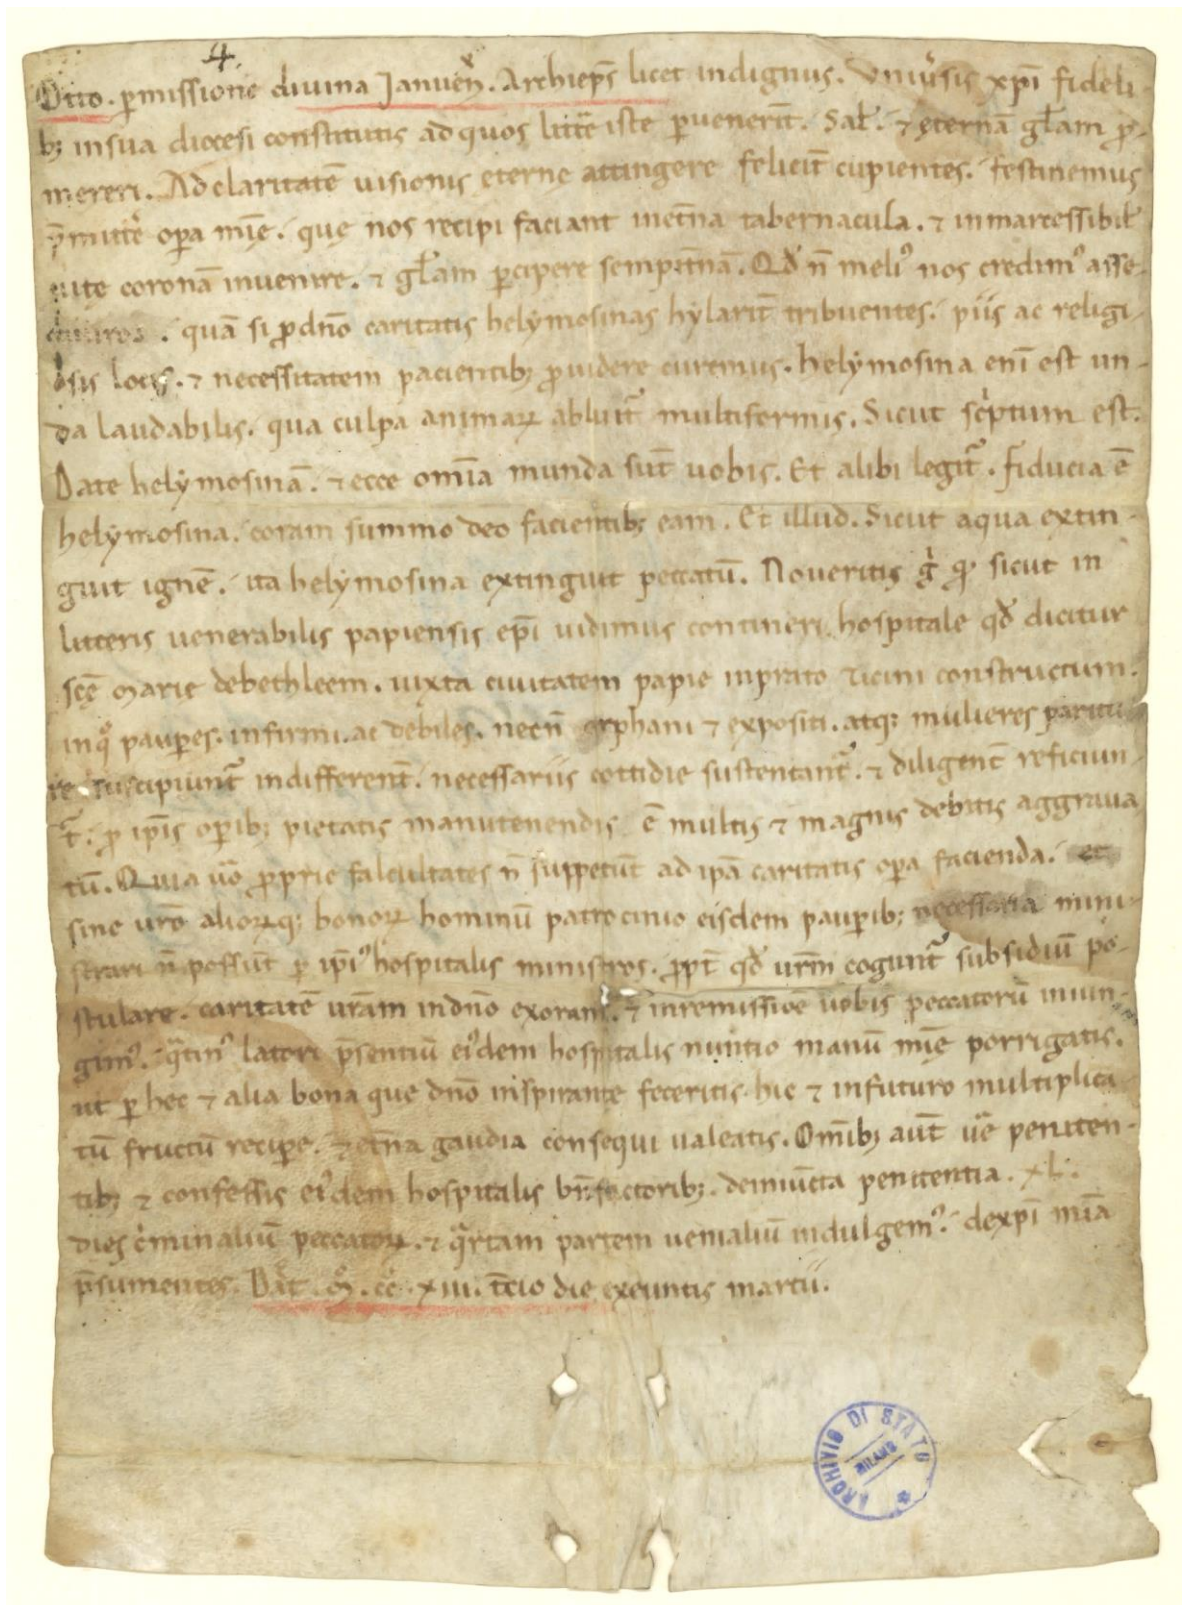 4
Otto. ꝑmissione diuina Januen̄. Archiep̄s licet indignus. Vniu̾sis xp̄i fideli-
bꝫ in sua diocesi constitutis ad quos litt̄e iste ꝑuenerīt. Sal̄. ⁊ ęternā gl̄am ꝓ-
mereri. Ad claritatē uisionis ęterne attingere felicit̄ cupientes. festinemus
p̄mitte̾ oꝑa mīe. que nos recipi faciant in et̄na tabernacula. ⁊ inmarcessibil̄
uite coronā inuenire. ⁊ gl̄am ꝑcipere sempit̄nā. Qd̄ n̄ meliꝰ nos credimꝰ asse-
cuturos. quā si ꝓ dn̄o caritatis helẏmosinas hẏlarit̄ tribuentes. piis ac religi-
osis locis. ⁊ necessitatem pacientibꝫ ꝓuidere curemus. helẏmosina enī est un-
da laudabilis. qua culpa animaꝝ abluit᷑ multiformis. Sicut sc̾ptum est.
Date helẏmosinā. ⁊ ecce om̄ia munda sūt uobis. Et alibi legit᷑. Fiducia ē
helẏmosina. coram summo deo facientibꝫ eam. Et illud. Sicut aqua extin-
guit ignē. ita helẏmosina extinguit peccatū. Noueritis g̾ ꝙ sicut in
litteris uenerabilis papiensis ep̄i uidimus contineri. hospitale qd̄ dicitur
sc̄e Marie de bethleem. iuxta ciuitatem papie in prato ticini constructum.
in q̊ pauꝑes. infirmi. ac debiles. necn̄ orphani ⁊ expositi. atqꝫ mulieres paritu-
re suscipiunt᷑ indifferent̄. necessariis cottidie sustentant᷑. ⁊ diligent̄ reficiun-
t᷑. ꝓ ip̄is oꝑibꝫ pietatis manutenendis ē multis ⁊ magnis debitis aggraua-
tū. Quia u̾o ꝓprie falcultates n̄ suppetūt ad ip̄a caritatis oꝑa facienda. et
sine ur̄o alioꝝqꝫ bonoꝝ hominū patrocinio eisdem pauꝑibꝫ necessaria mini-
strari n̄ possūt ꝑ ip̄iꝰ hospitalis ministros. ꝓpt̄ qd̄ ur̄m cogunt᷑ subsidiū po-
stulare. caritatē ur̄am in dn̄o exoramꝰ. ⁊ in remissiōe uobis peccatorū iniun-
gimꝰ. qͣtinꝰ latori p̄sentiū eiꝰdem hospitalis nuntio manū mīe porrigatis.
ut ꝑ hec ⁊ alia bona que dn̄o inspirante feceritis hic ⁊ in futuro multiplica-
tū fructū reciꝑe. ⁊ et̄na gaudia consequi ualeatis. Om̄ibꝫ aut̄ u̾e peniten-
tibꝫ ⁊ confessis eiꝰdem hospitalis bn̄factoribꝫ. de iniūcta penitentia. xl.
dies c̾minaliū peccatoꝝ. ⁊ qͣrtam partem uenialiū indulgemꝰ. de xp̄i mīa
p̄sumentes. Dat̄. M̊. cc̊. xiii. t̄cio die exeuntis martii.
ARCHIVIO DI STATO
MILANO